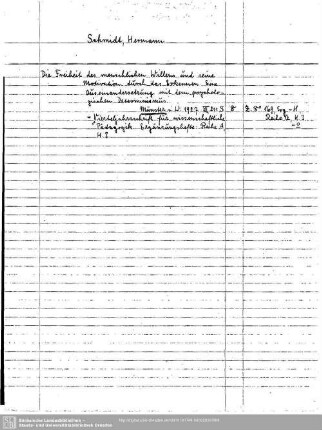 Schmidt, Hermann
Die Freiheit des menschlichen Willens und seine
Motivation durch das Erkennen. Eine
Auseinandersetzung mit dem psycholo-
gischen Determinismus.
Münster i. W. 1927. 8° Z. 8°
= Vierteljahrsschrift für wissenschaftliche Reihe A, H. 3
Pädagogik. Ergänzungshefte. Reihe A
H. 3
Sächsische Landesbibliothek -
Staats- und Universitätsbibliothek Dresden